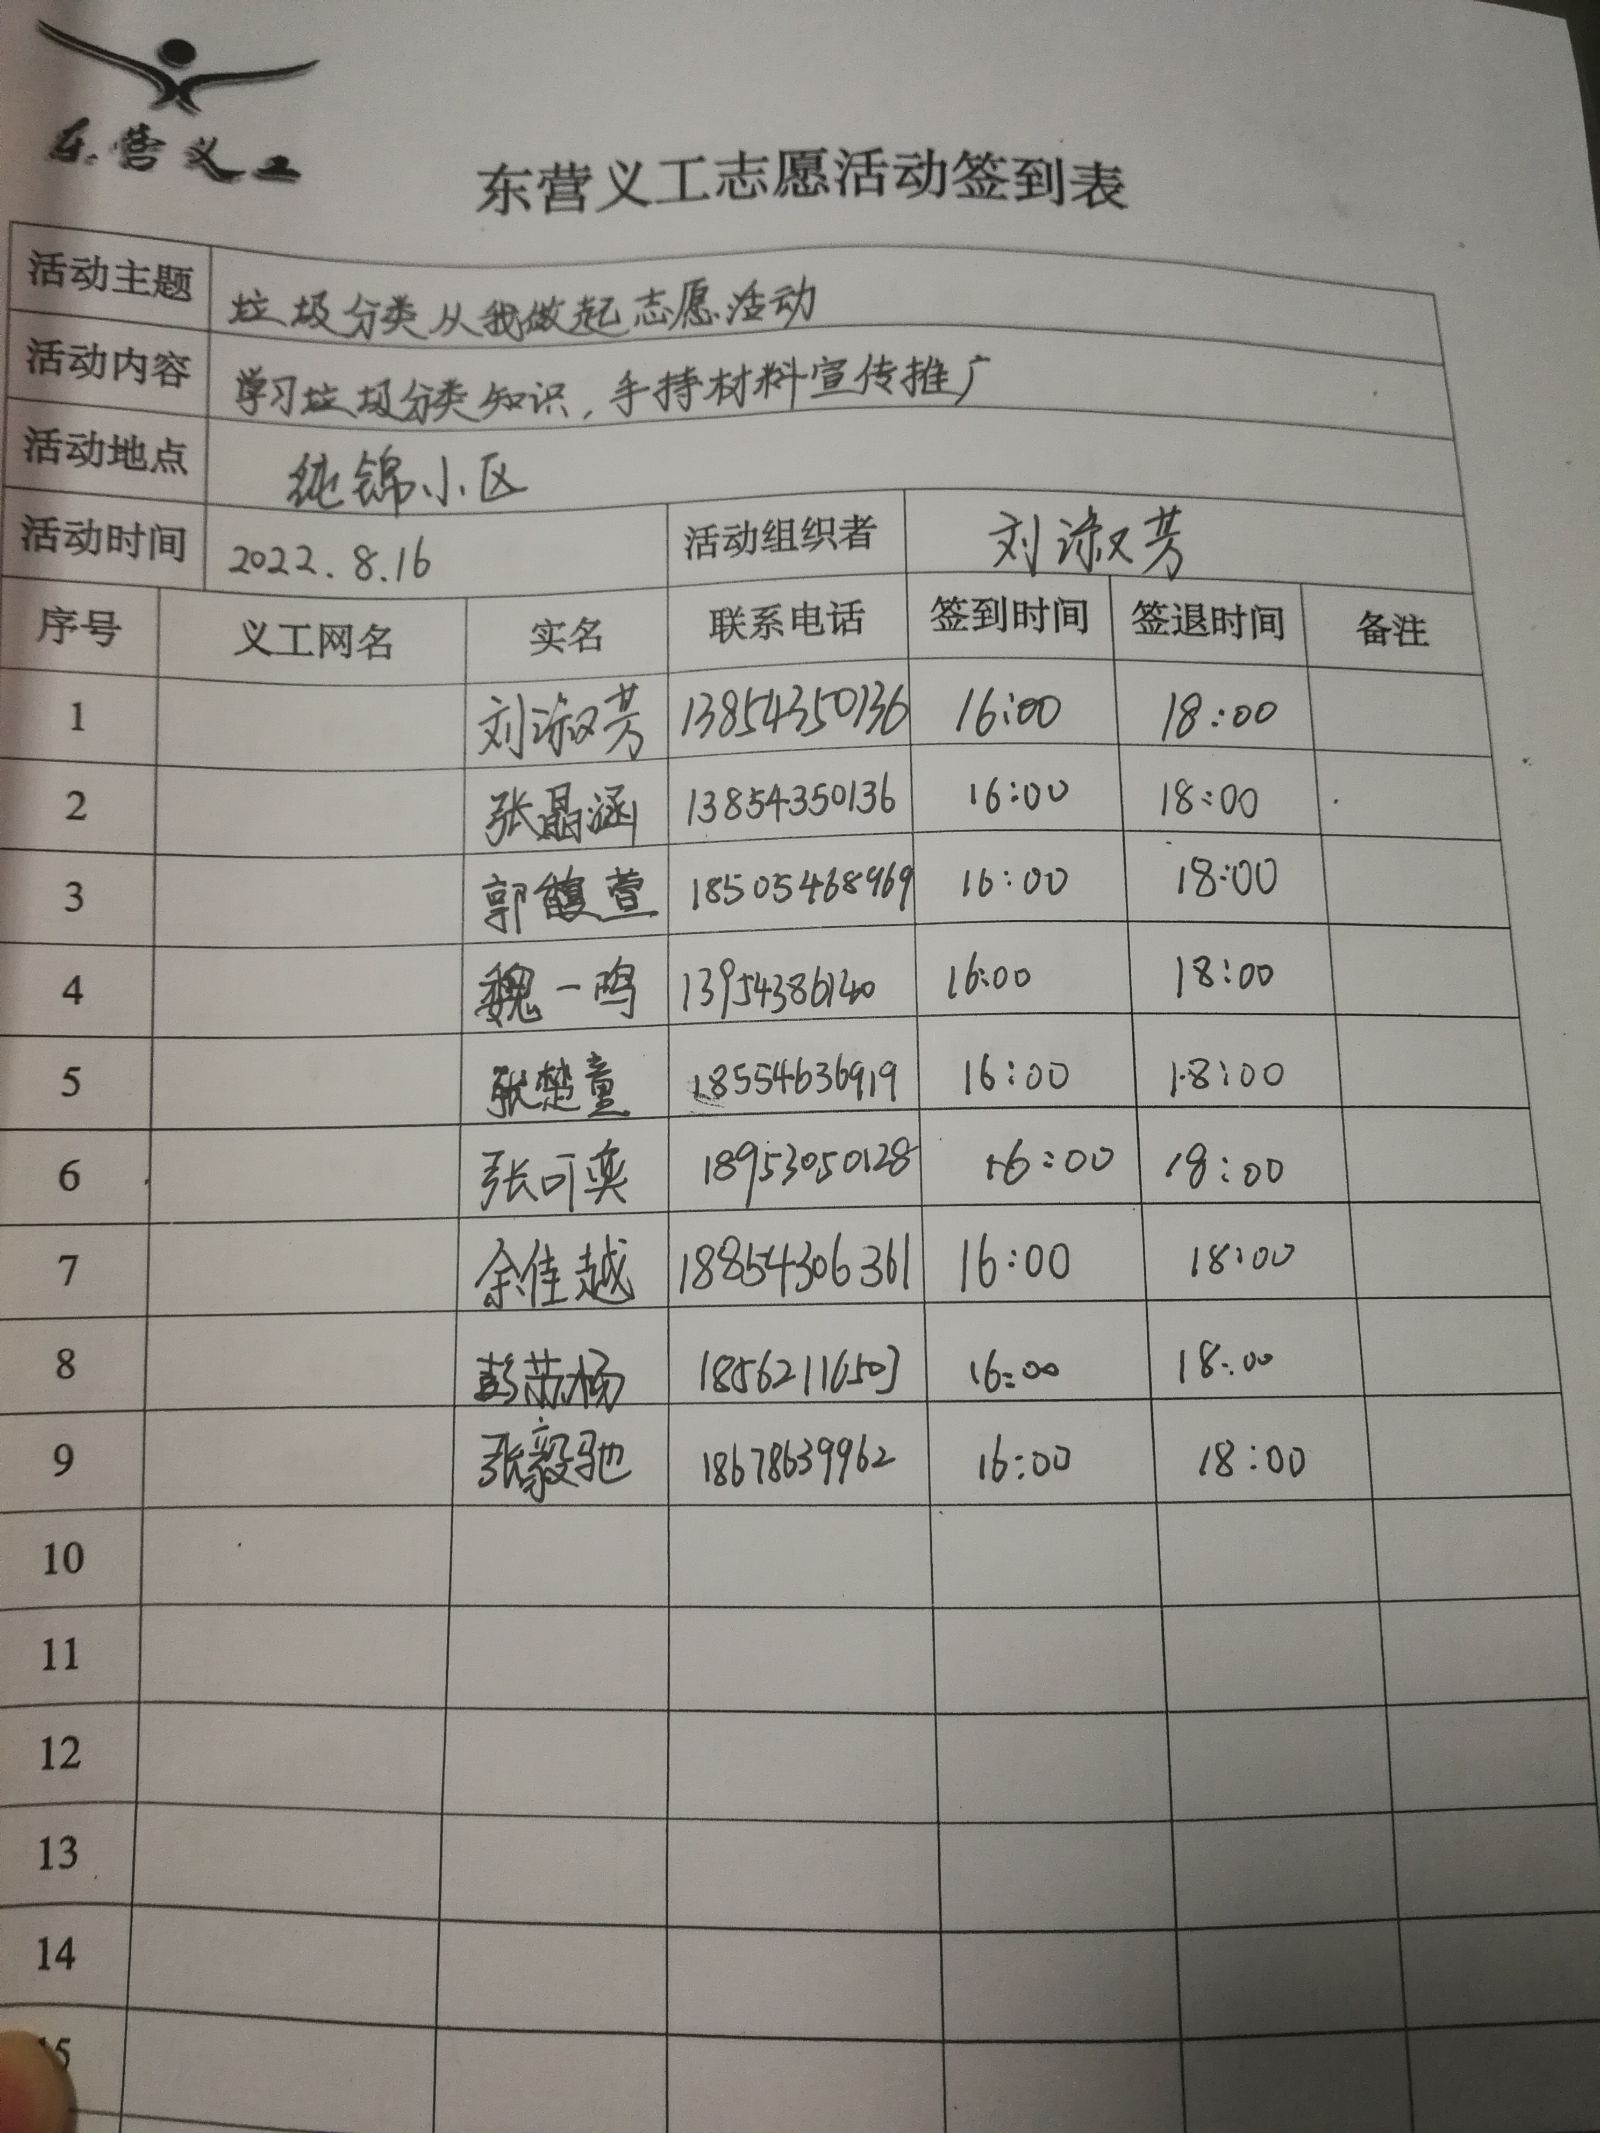 东营义工
东营义工志愿活动签到表
活动主题 垃圾分类从我做起志愿活动
活动内容 学习垃圾分类知识,手持材料宣传推广
活动地点 纯锦小区
活动时间 2022.8.16 活动组织者 刘淑芳
序号 义工网名 实名 联系电话 签到时间 签退时间 备注
1 刘淑芳 13854350136 16:00 18:00
2 张晶涵 13854350136 16:00 18:00
3 郭馥萱 18505468969 16:00 18:00
4 魏一鸣 13954386140 16:00 18:00
5 张楚童 18554636919 16:00 18:00
6 张可奕 18953050128 16:00 18:00
7 余佳越 18854306361 16:00 18:00
8 彭苏杨 18562111503 16:00 18:00
9 张毅驰 18678639962 16:00 18:00
10
11
12
13
14
15